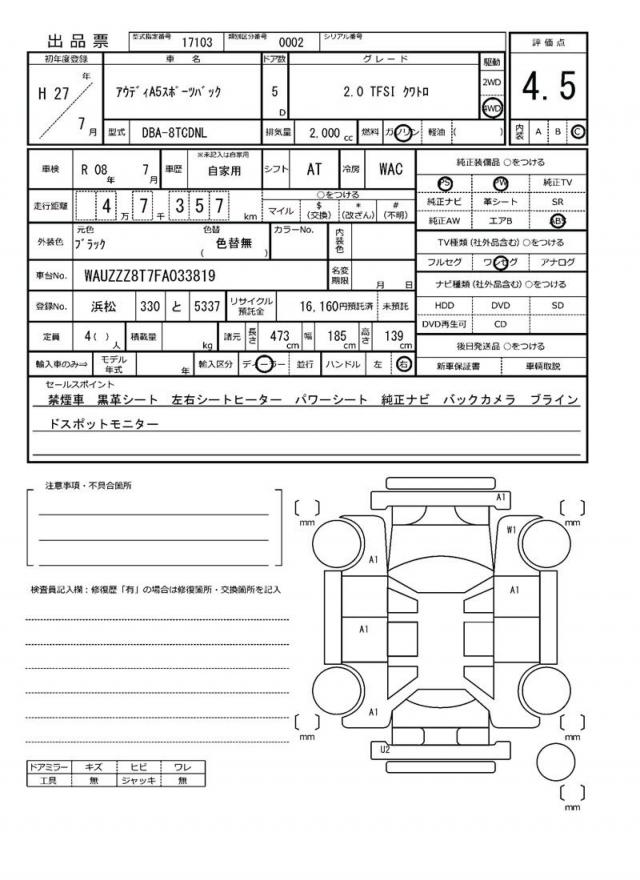 出品票 型式指定番号 17103 類別区分番号 0002 シリアル番号
初年度登録 車名 ドア数 グレード 駆動 評価点
H 27 年 7 月 アウディA5スポーツバック 5 D 2.0 TFSI クワトロ 2WD 4WD 4.5
型式 DBA-8TCDNL 排気量 2,000 cc 燃料 ガソリン 軽油 ( ) 内装 A B C
車検 R 08 年 7 月 車歴 ※未記入は自家用 自家用 シフト AT 冷房 WAC 純正装備品 ○をつける
PS PW 純正TV
走行距離 4 万 7 千 3 5 7 km ○をつける マイル $ (交換) * (改ざん) # (不明) 純正ナビ 革シート SR
純正AW エアB ABS
外装色 元色 ブラック 色替 ( 色替無 ) カラーNo. 内装色 TV種類 (社外品含む) ○をつける
フルセグ ワンセグ アナログ
車台No. WAUZZZ8T7FA033819 名変期限 月 日 ナビ種類 (社外品含む) ○をつける
登録No. 浜松 330 と 5337 リサイクル預託金 16,160円預託済 未預託 HDD DVD SD
DVD再生可 CD
定員 4( ) 人 積載量 kg 諸元 長さ 473 cm 幅 185 cm 高さ 139 cm 後日発送品 ○をつける
輸入車のみ⇒ モデル年式 年 輸入区分 ディーラー 並行 ハンドル 左 右 新車保証書 車輌取説
セールスポイント
禁煙車 黒革シート 左右シートヒーター パワーシート 純正ナビ バックカメラ ブライン
ドスポットモニター
注意事項・不具合箇所
A1
mm mm
W1
A1
検査員記入欄:修復歴「有」の場合は修復箇所・交換箇所を記入
A1
A1
A1
mm mm
U2
ドアミラー キズ ヒビ ワレ
工具 無 ジャッキ 無
mm